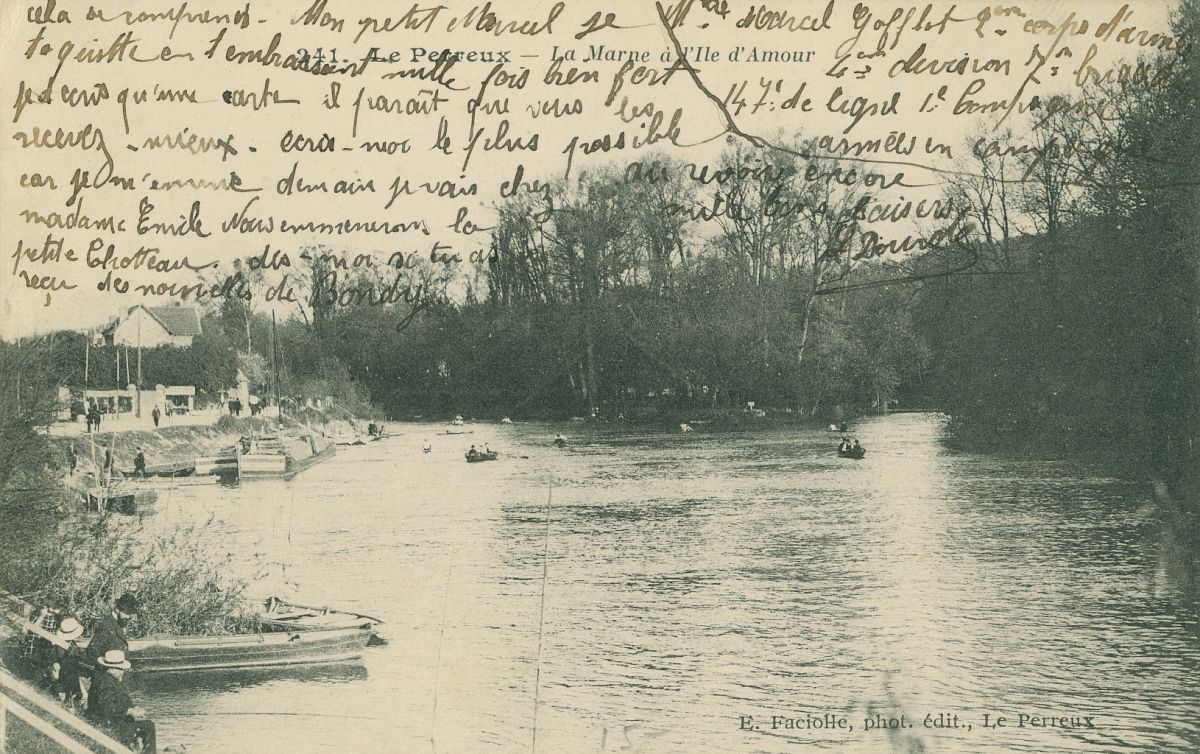 cela se comprend. Mon petit Marcel je
te quitte en t'embrassant mille fois bien fort
j'ecris qu'une carte il paraît que vous les
recevez mieux. ecris-moi le plus possible
car je m'ennuie demain j'vais chez
madame Emile Nous emmenerons la
petite Chotteau. dis-moi si tu as
reçu des nouvelles de Bondy
au revoir encore
mille bons baisers
Marcel Gofflot 2eme corps d'armé
4em division 7em brigade
147e de ligne 1e Compagnie
armées en campagne
241. Le Perreux — La Marne à l'Ile d'Amour
E. Faciolle, phot. édit., Le Perreux
15